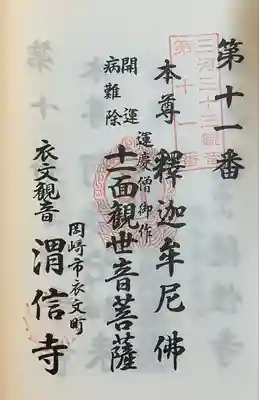 第十一番
三河三十三観音
第十一番
本尊 釋迦牟尼佛
運慶僧御作
開運
病難除
十一面觀世音菩薩
岡崎市衣文町
衣文觀音 渭信寺